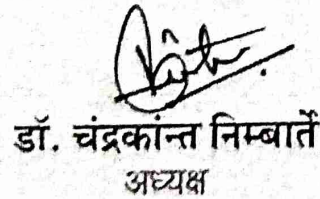 डॉ. चंद्रकान्त निम्बार्ते
अध्यक्ष